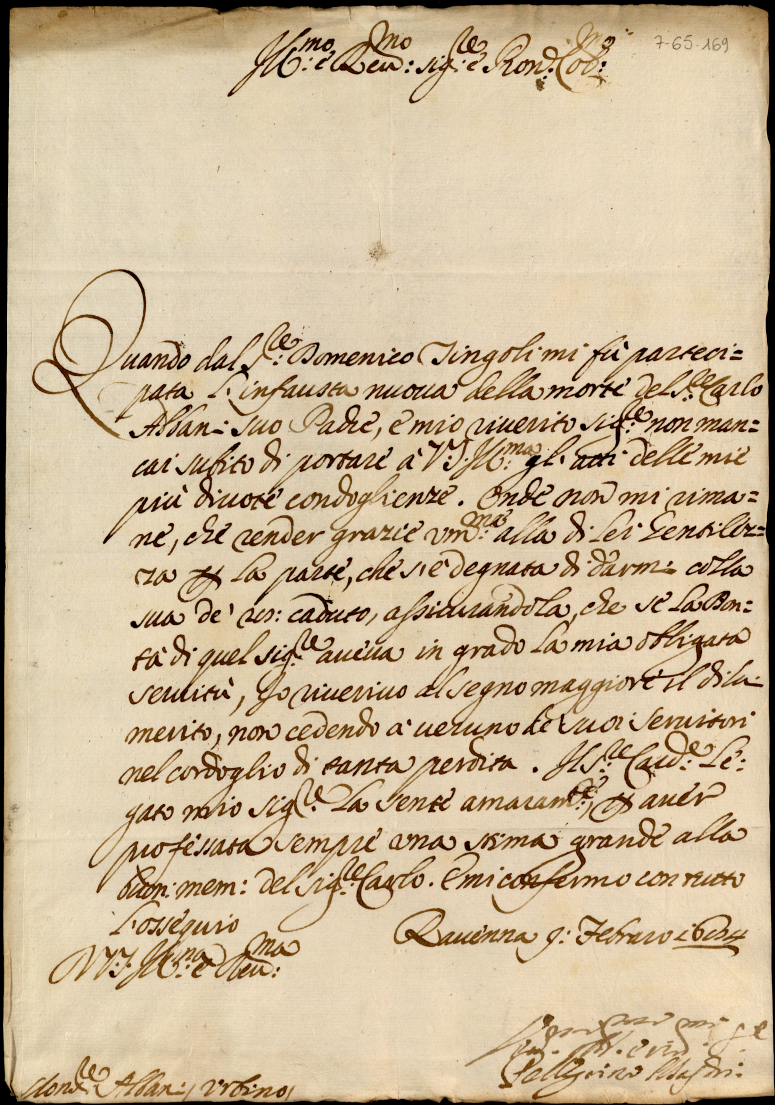 Ill:mo e Reud:mo sig:re e Pron: Col:mo
7-65-169
Quando dal S:re Domenico Singoli mi fù parteci=
pata l'infausta nuoua della morte del S:re Carlo
Alban: suo Padre, e mio riuerito sig:re non man=
cai subito di portare à V.S. Ill:ma gl'atti delle mie
più diuote condoglienze. Onde non mi rima=
ne, che render grazie vm:me alla di lei Gentilez=
za per la parte, che s'è degnata di darmi colla
sua de' caduto, assicurandola, che se la Bon=
tà di quel sig:re aueua in grado la mia obligata
seruitù, Io riueriuo al segno maggiore il di lui
merito, non cedendo à ueruno de suoi seruitori
nel cordoglio di tanta perdita. Il S:re Card:le Le=
gato mio sig:re la sente amaram:te, per auer
professata sempre vna stima grande alla
buon: mem: del sig:re Carlo. E mi confermo con tutto
l'ossequio
V.S. Ill:ma e Reu:ma
Rauenna 9: Febraro 1684
Pellegrino
Alban: Vrbino